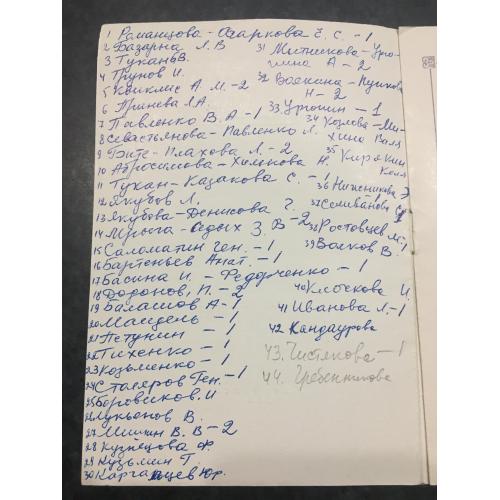 1 Романцова - Очаркова Е. С. - 1
2 Базарна Л. В
3 Тукань В.
4 Трунов И.
5 Коиклис А. М. - 2
6 Тринева Л.А.
7 Павленко В. А - 1
8 Севастьянова - Павленко Л.
9 Бите - Плахова Л. - 2
10 Абросимова - Хиленова Н.
11 Тукан - Казакова С. - 1
12 Якубов Л.
13 Якубова - Денисова Г.
14 Мрыга - Седых З. В - 2
15 Саломатин Ген. - 1
16 Бартеньев Анат. - 1
17 Басина И. - Федорченко - 1
18 Додонов, Н. - 2
19 Балашов А - 1
20 Мандель - 1
21 Петунин - 1
22 Тихенко - 1
23 Козьменко - 1
24 Столяров Ген. - 1
25 Боровсков. И
26 Лукьянов В.
27 Мишин В. В - 2
28 Кузнецова Ф.
29 Кузьмин Т
30 Каргальцев Юр.
31 Митникова - Уро-
мина А - 2
32 Воскина - Пушкова
Н - 2
33 Урюпин - 1
34 Козлова - Ми-
хина Валя
35 Кирокин
Коля
36 Нижникова Э
37 Селиванова
38 Ростовцев М - 1
39 Волков В. - 1
40 Клочкова И.
41 Иванова Л. - 1
42 Кандаурова
43. Чистякова - 1
44. Гребенникова